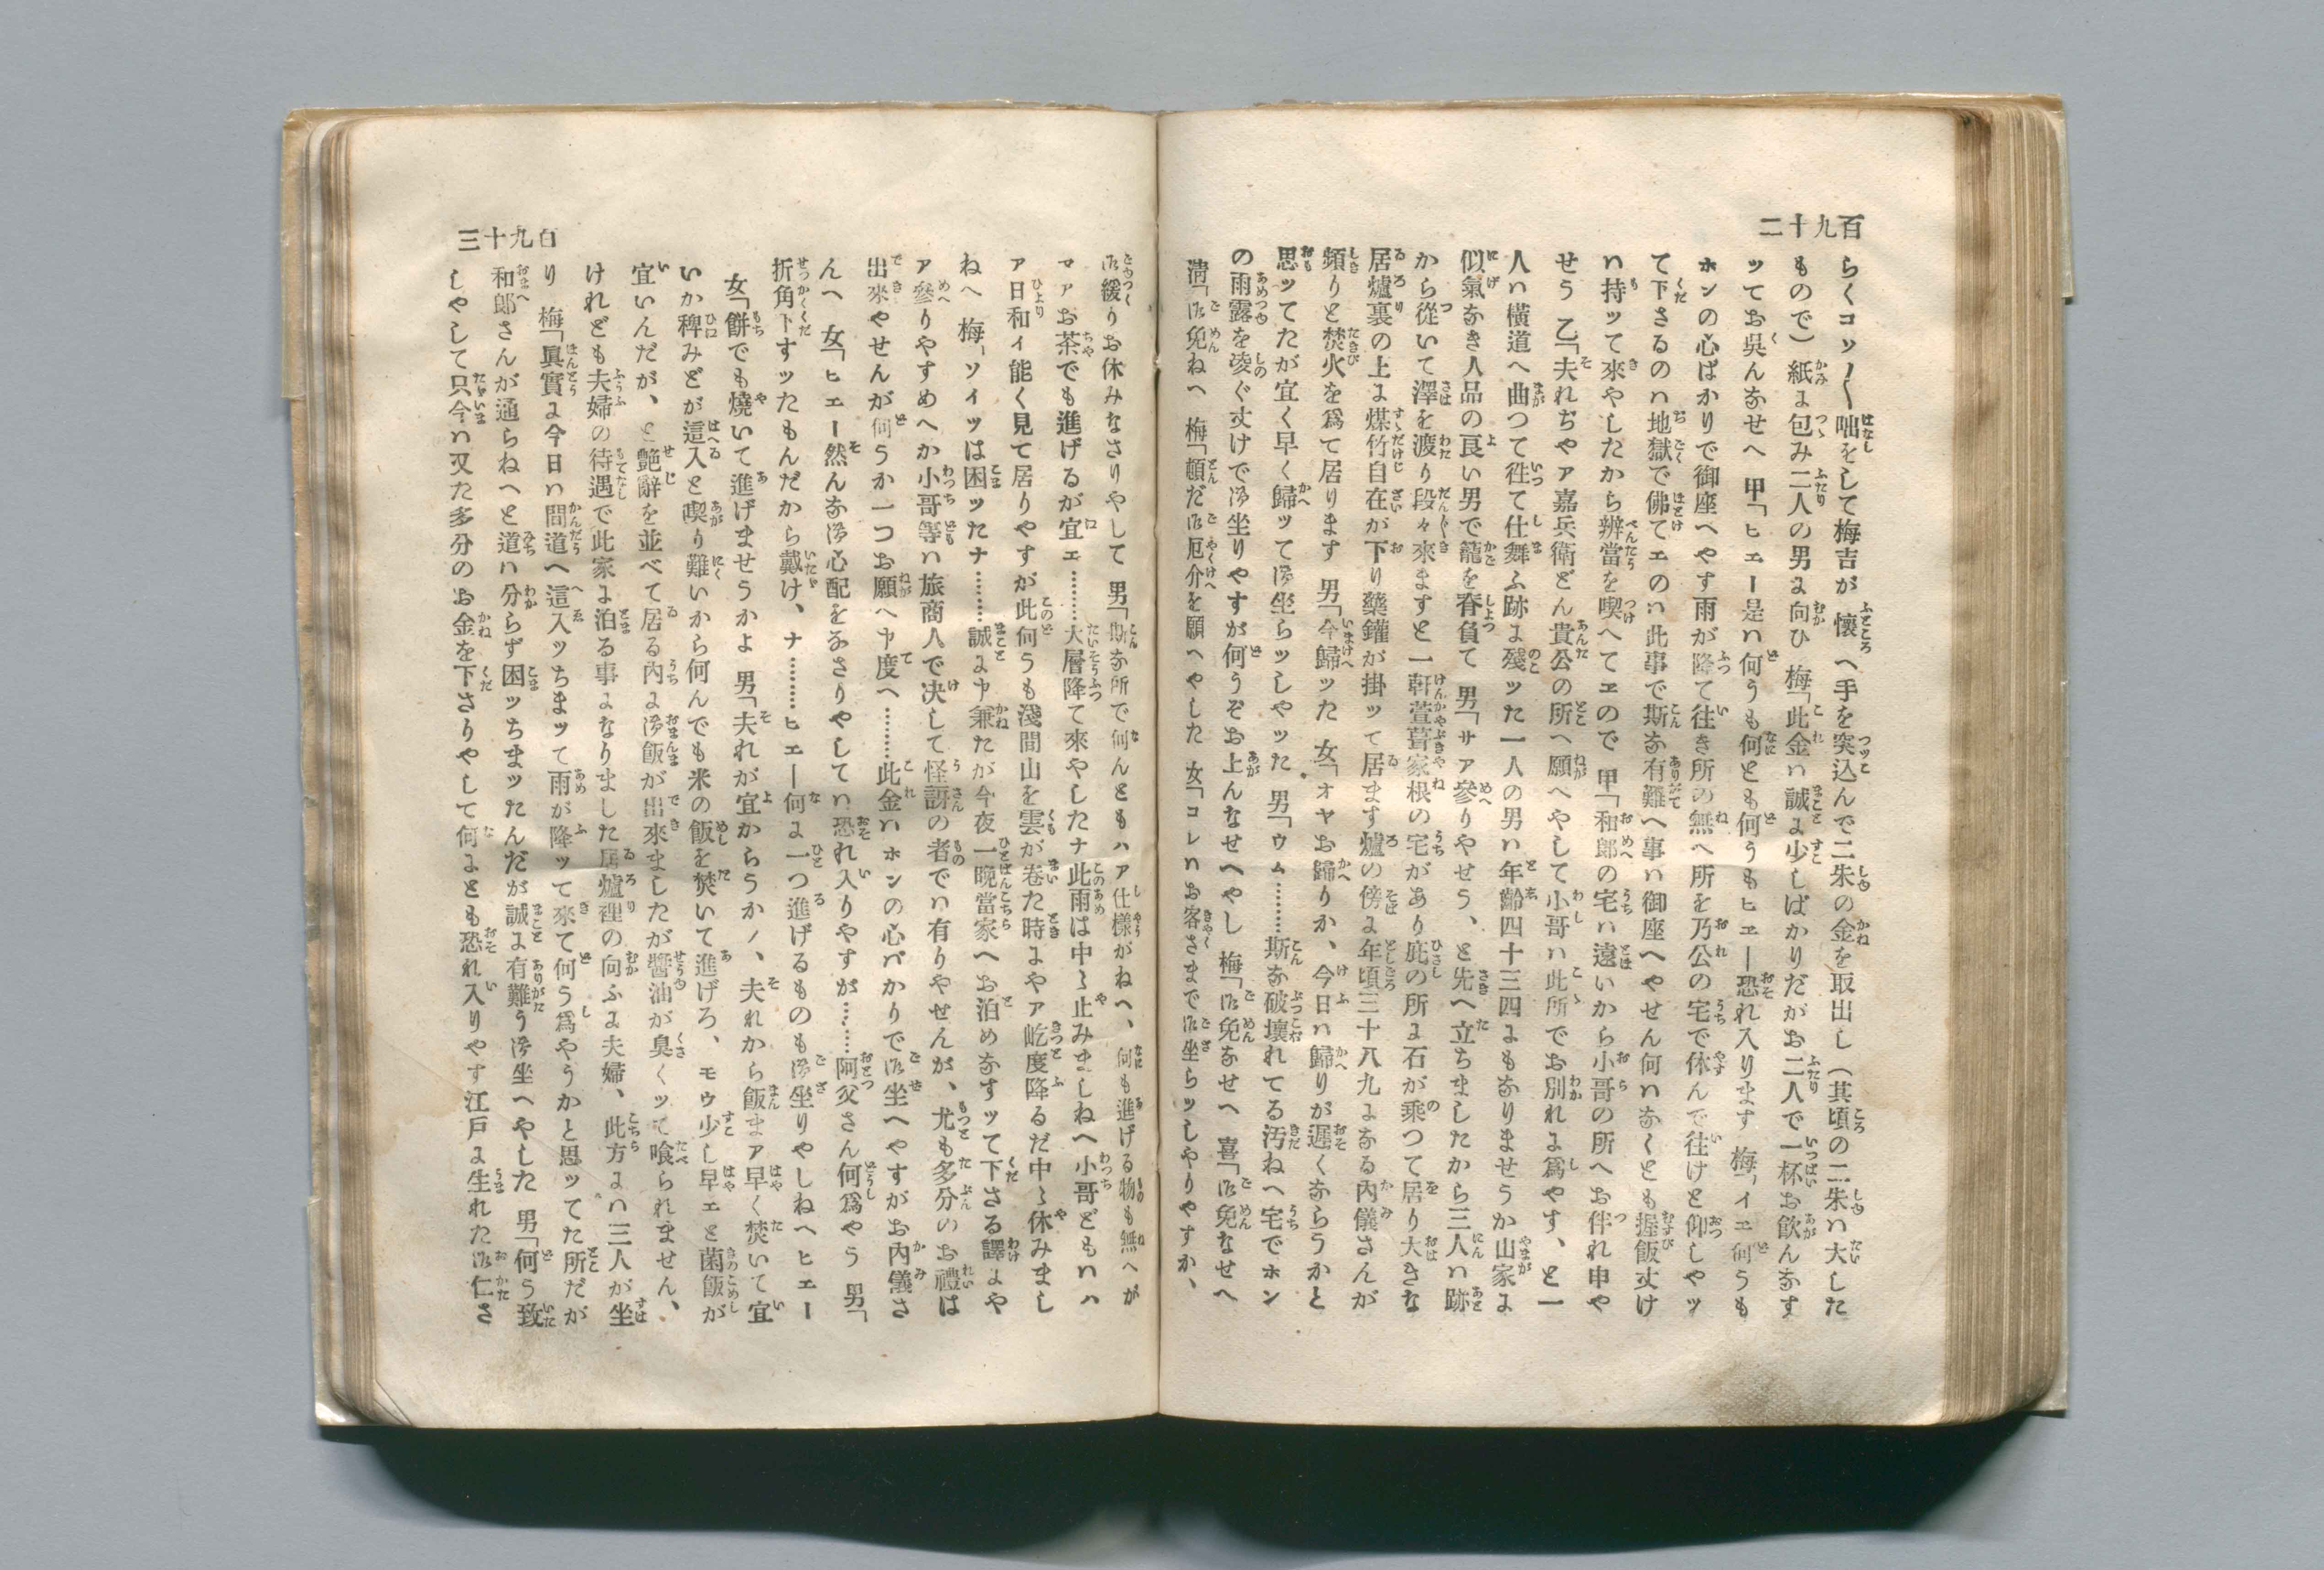 百九十二
らくコソ〳〵咄をして梅吉が懐へ手を突込んで二朱の金を取出し（其頃の二朱ハ大した
もので）紙ま包み二人の男ま向ひ　梅「此金ハ誠ま少しばかりだがお二人で一杯お飲んなす
ッてお呉んなせへ　甲「ヒエー是ハ何うも何とも何うもヒエー恐れ入ります　梅「イエ何うも
ホンの心ばかりで御座へやす雨が降て往き所の無へ所を乃公の宅で休んで往けと仰しやッ
て下さるのハ地獄で佛てエのハ此事で斯な有難へ事ハ御座へやせん何ハなくとも握飯丈け
ハ持ッて來やしたから辨當を喫へてエので　甲「和郎の宅ハ遠いから小哥の所へお伴れ申や
せう　乙「夫れぢやア嘉兵衛どん貴公の所へ願へやして小哥ハ此所でお別れま爲やす、と一
人ハ横道へ曲つて徃て仕舞ふ跡ま殘ッた一人の男ハ年齢四十三四まもなりませうか山家ま
似氣なき人品の良い男で籠を脊負て　男「サア參りやせう、と先へ立ちましたから三人ハ跡
から從いて澤を渡り段々來ますと一軒萱葺家根の宅があり庇の所ま石が乘つて居り大きな
居爐裏の上ま煤竹自在が下り藥鑵が掛ッて居ます爐の傍ま年頃三十八九まなる内儀さんが
頻りと焚火を爲て居ります　男「今歸ッた　女「オヤお歸りか、今日ハ歸りが遲くならうかと
思ッてたが宜く早く歸ッて御坐らッしやッた　男「ウム………斯な破壞れてる汚ねへ宅でホン
の雨露を凌ぐ丈けで御坐りやすが何うぞお上んなせへやし　梅「御免なせへ　喜「御免なせへ
淸「御免ねへ　梅「頓だ御厄介を願へやした　女「コレハお客さまで御坐らッしやりやすか、
百九十三
御緩りお休みなさりやして　男「斯な所で何んともハア仕樣がねへ、何も進げる物も無へが
マアお茶でも進げるが宜エ………大層降て來やしたナ此雨は中〻止みましねへ小哥どもハハ
ア日和イ能く見て居りやすが此何うも淺間山を雲が卷た時まやア屹度降るだ中〻休みまし
ねへ　梅「ソイツは困ッたナ………誠ま申兼たが今夜一晩當家へお泊めなすッて下さる譯まや
ア參りやすめへか小哥等ハ旅商人で决して怪訝の者でハ有りやせんが、尤も多分のお禮は
出來やせんが何うか一つお願へ申度へ………此金ハホンの心バかりで御坐へやすがお内儀さ
んへ　女「ヒエー然んな御心配をなさりやしてハ恐れ入りやすが………阿父さん何爲やう　男「
折角下すッたもんだから戴け、ナ………ヒエー何ま一つ進げるものも御坐りやしねへヒエー
女「餅でも燒いて進げませうかよ　男「夫れが宜からうかノ、夫れから飯まア早く焚いて宜
いか稗みどが這入と喫り難いから何んでも米の飯を焚いて進げろ、モウ少し早エと菌飯が
宜いんだが、と艶辭を並べて居る内ま御飯が出來ましたが醬油が臭くッて喰られません、
けれども夫婦の待遇で此家ま泊る事まなりました居爐裡の向ふま夫婦、此方まハ三人が坐
り　梅「眞實ま今日ハ間道へ這入ッちまッて雨が降ッて來て何う爲やうかと思ッてた所だが
和郎さんが通らねへと道ハ分らず困ッちまッたんだが誠ま有難う御坐へやした　男「何う致
しやして只今ハ又た多分のお金を下さりやして何まとも恐れ入りやす江戸ま生れた御仁さ